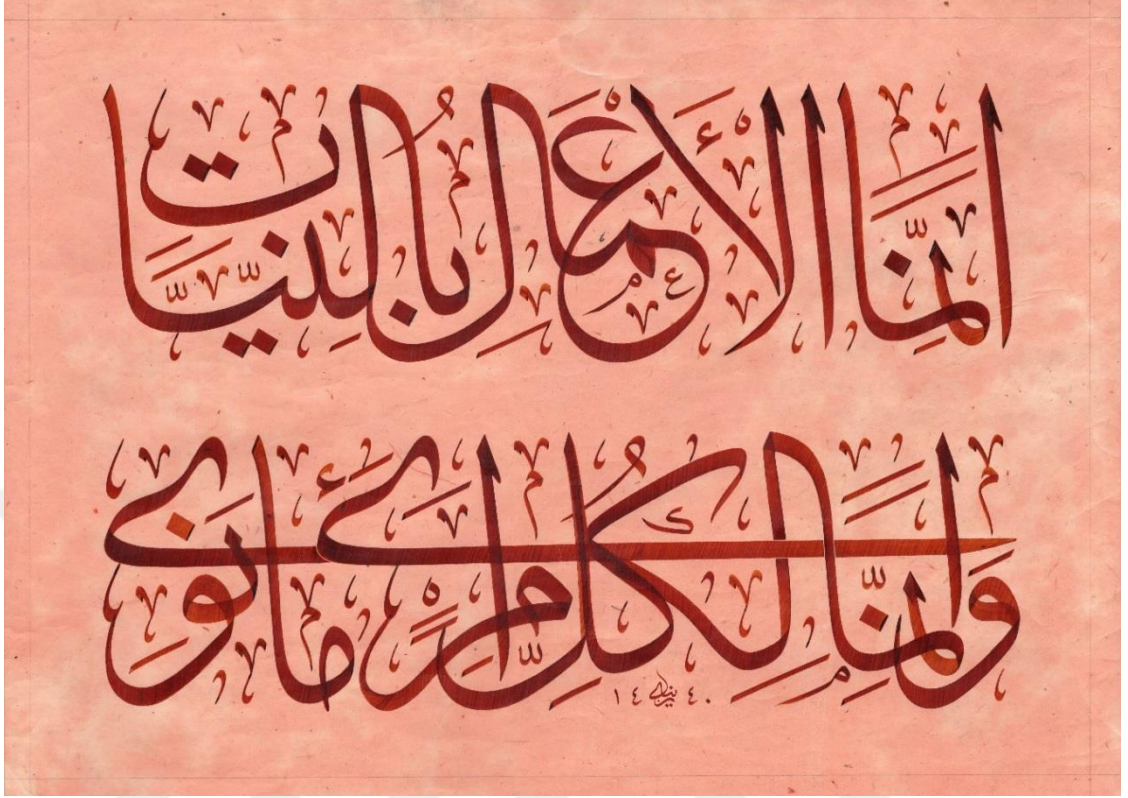 إِنَّمَا الْأَعْمَالُ بِالنِّيَّاتِ
وَإِنَّمَا لِكُلِّ امْرِئٍ مَا نَوَى
١٤٤٠